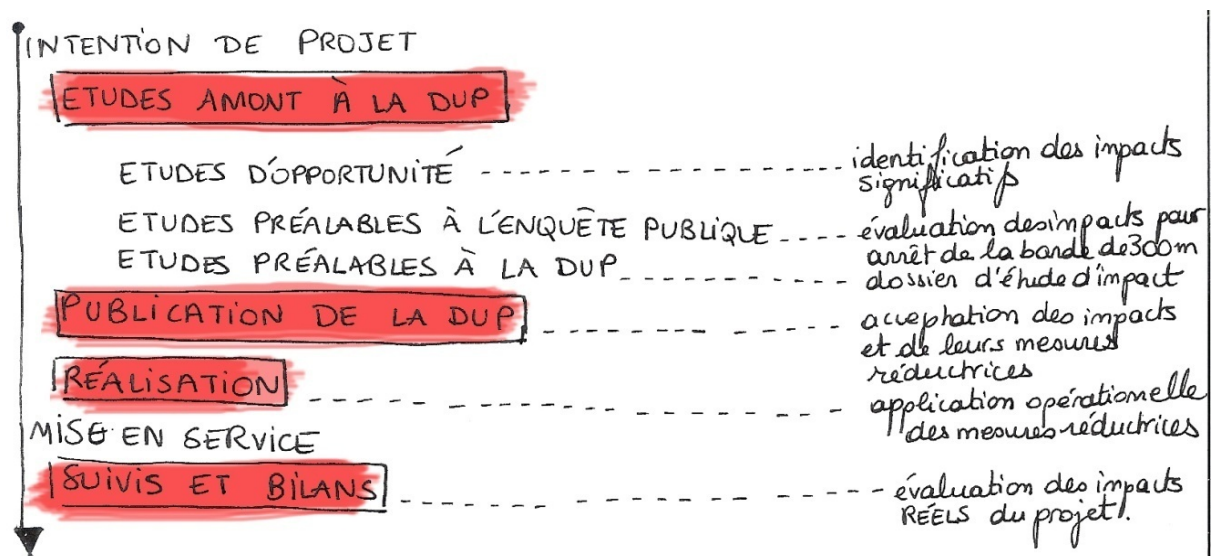 INTENTION DE PROJET
ETUDES AMONT À LA DUP
ETUDES D'OPPORTUNITÉ ---- identification des impacts
significatifs
ETUDES PRÉALABLES À L'ENQUÊTE PUBLIQUE ---- évaluation des impacts pour
arrêt de la bande de 300m
ETUDES PRÉALABLES À LA DUP ---- dossier d'étude d'impact
PUBLICATION DE LA DUP ---- acceptation des impacts
et de leurs mesures
réductrices
RÉALISATION ---- application opérationnelle
des mesures réductrices
MISE EN SERVICE
SUIVIS ET BILANS ---- évaluation des impacts
RÉELS du projet.